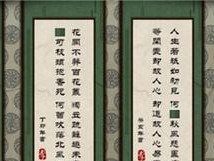 人生若祇如初見 何秋風悲畫扇
等閒變卻故人心 卻道故人心易變
花開不并百花叢 獨立疏籬趣未窮
可枝頭抱香死 何曾吹落北風中